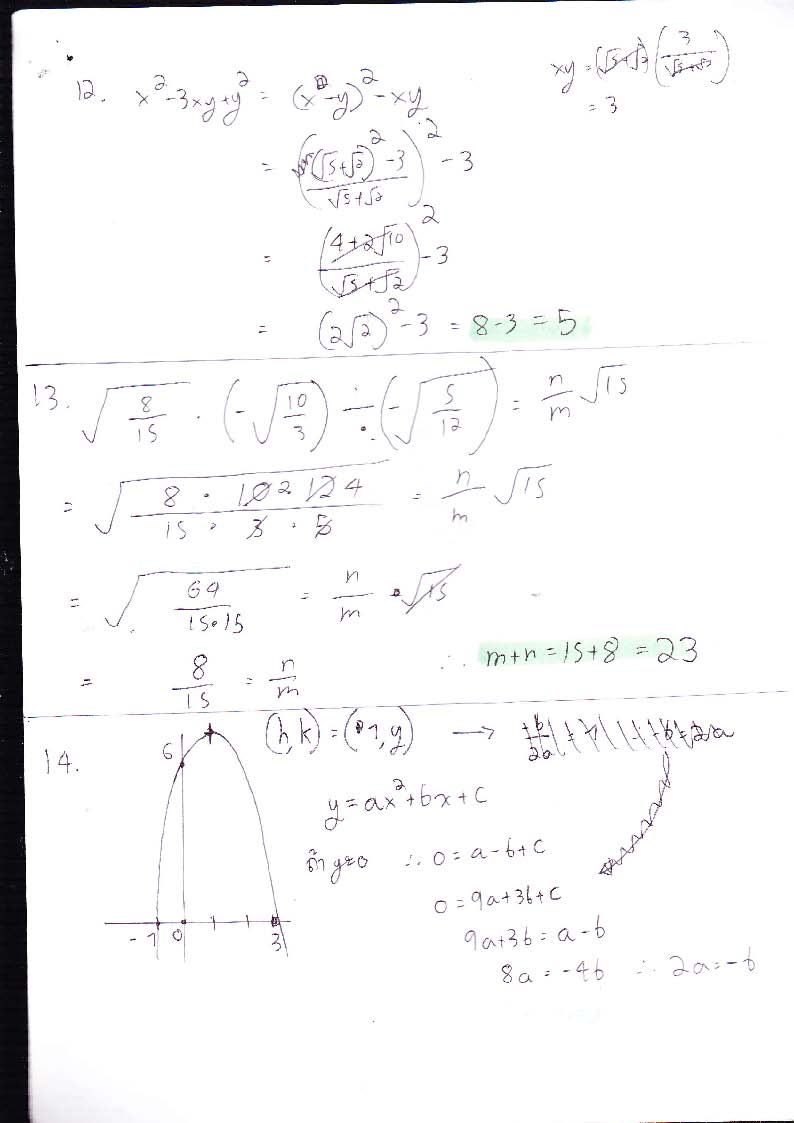 12. x² - 3xy + y² = (x - y)² - xy
xy = (√5+√2)(3/(√5+√2))
= 3
= (((√5+√2)² - 3)/(√5+√2))² - 3
= ((4+2√10)/(√5+√2))² - 3
= (2√2)² - 3 = 8-3 = 5
13. √(8/15) · (-√(10/3)) ÷ (-√(5/12)) = n/m √15
= √((8 · 10 2 12 4)/(15 · 3 · 5)) = n/m √15
= √(64/(15·15)) = n/m · √15
= 8/15 = n/m ∴ m+n = 15+8 = 23
14. (h,k) = (1,y) →
6
y = ax² + bx + c
ถ้า y=0 ∴ 0 = a-b+c
0 = 9a+3b+c
-1 0 3
9a+3b = a-b
8a = -4b ∴ 2a = -b